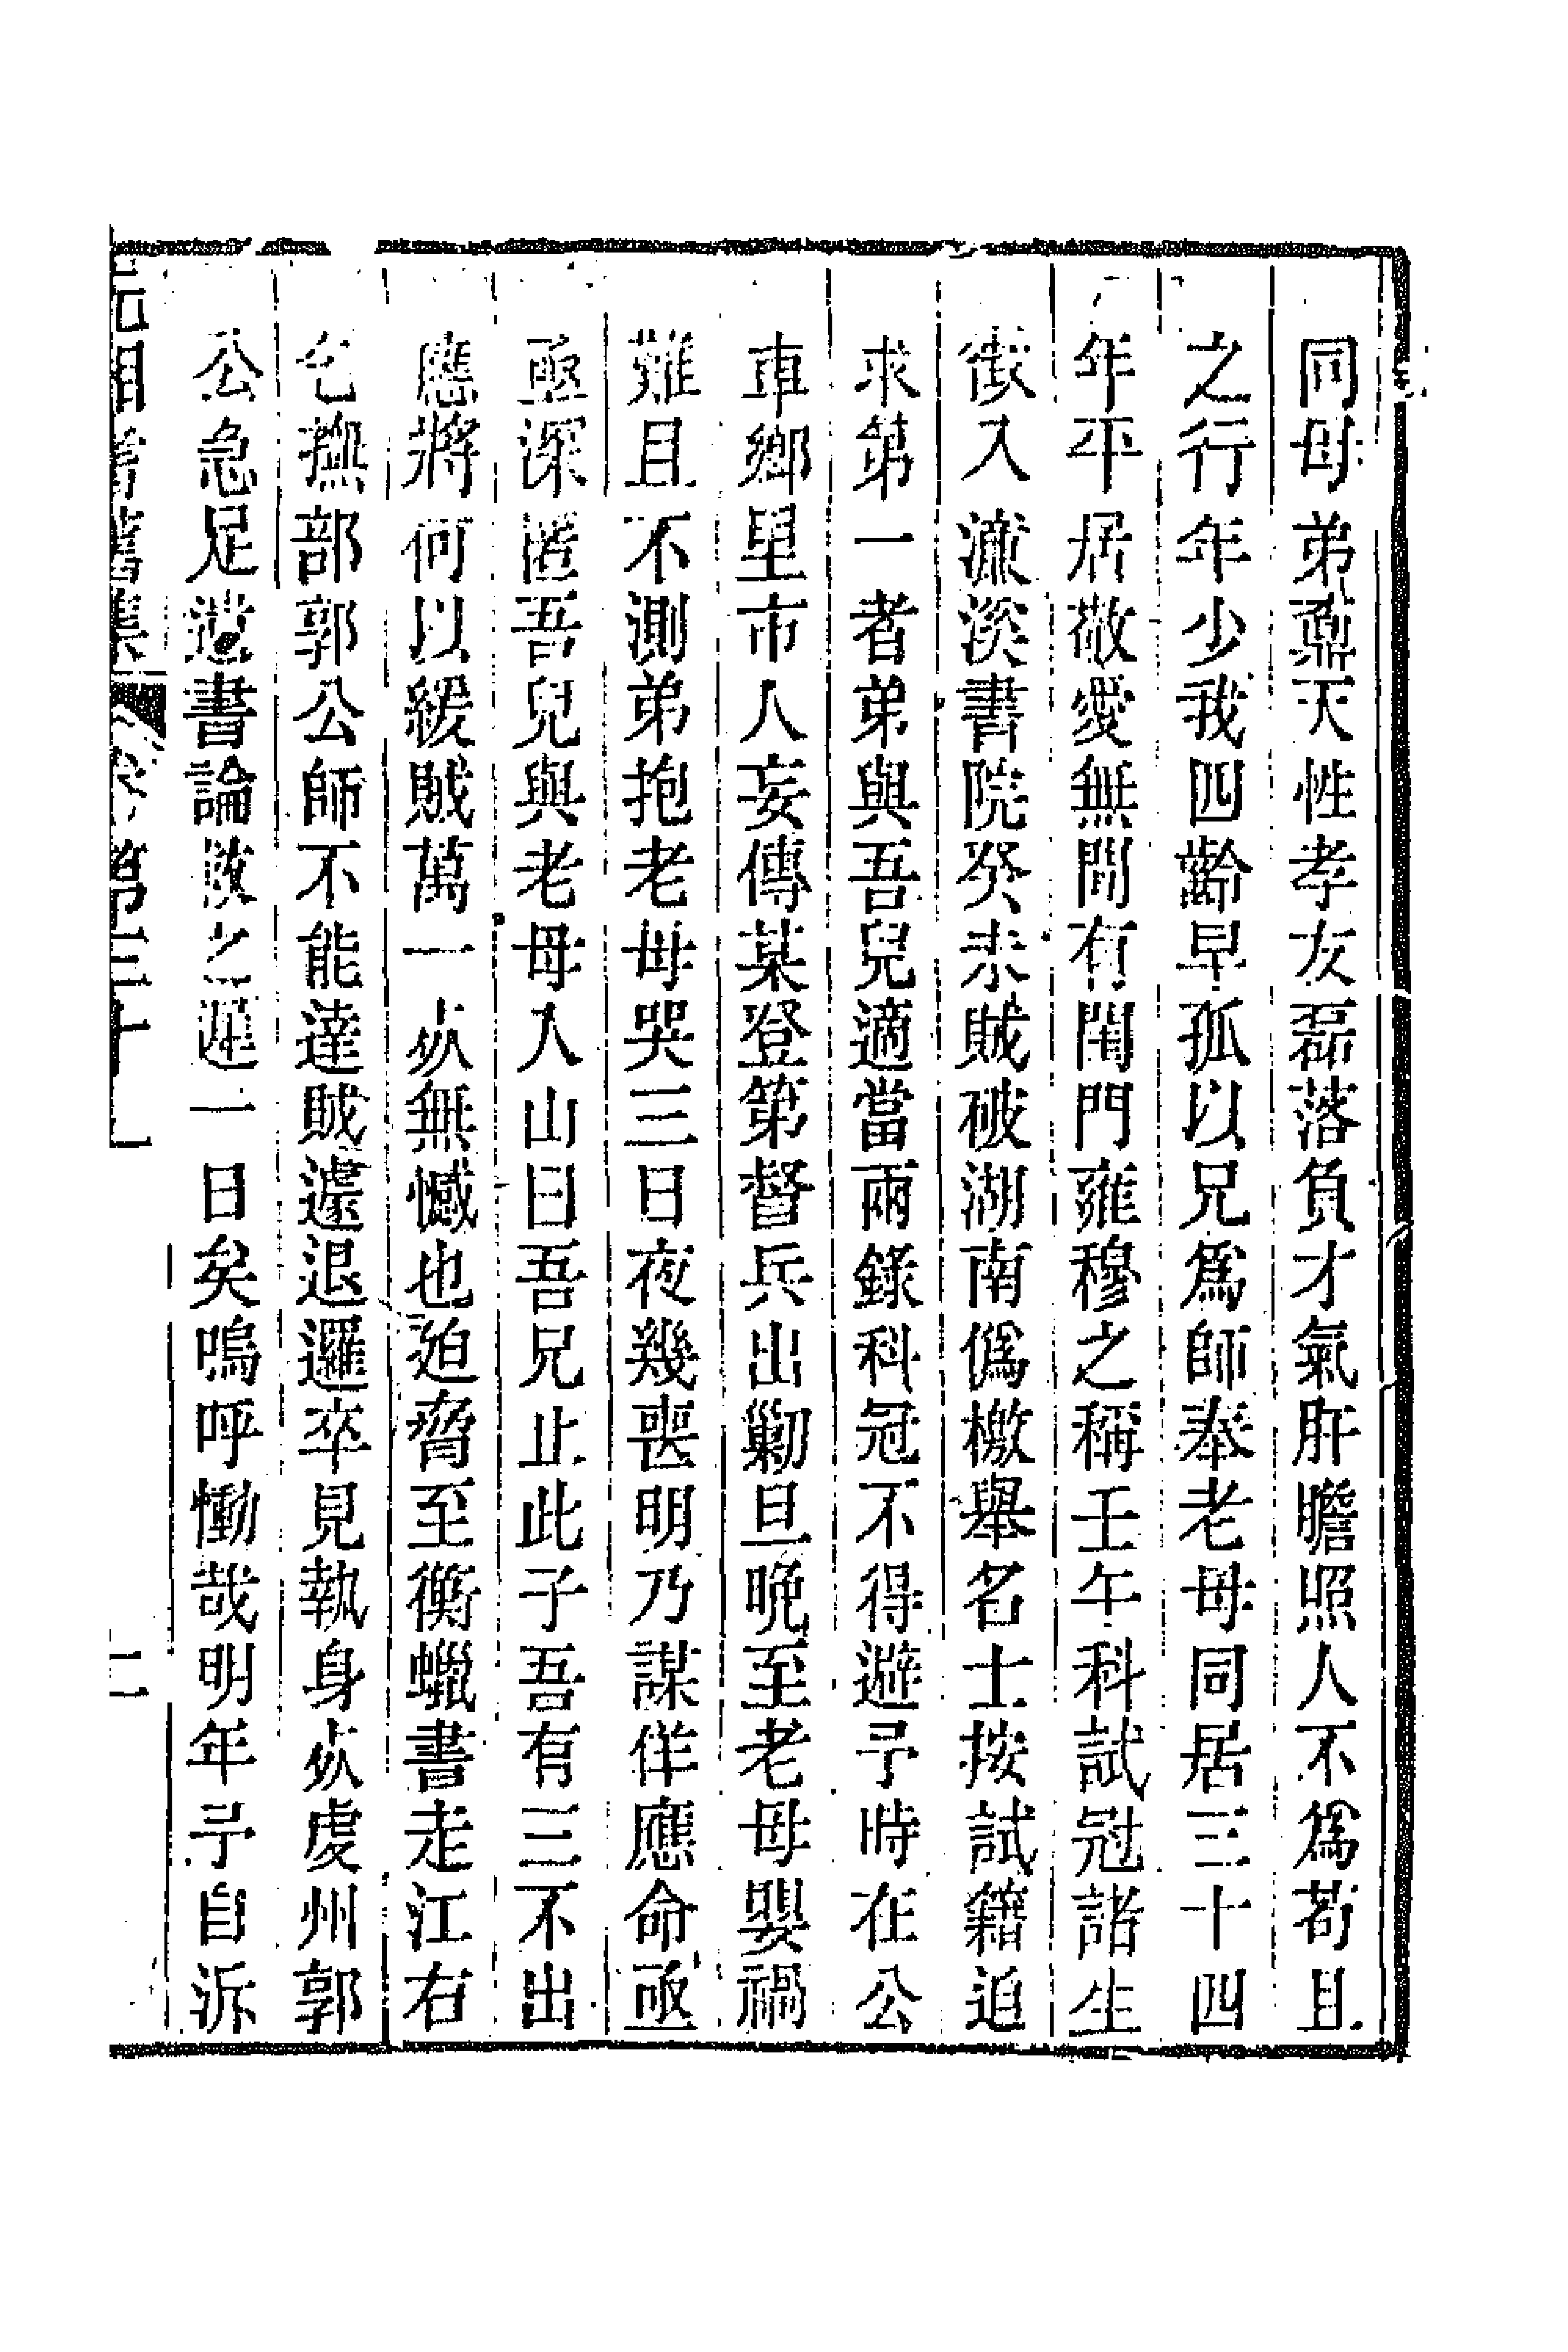 同母弟鼐天性孝友磊落負才氣肝膽照人不爲苟且
之行年少我四齡早孤以兄爲師奉老母同居三十四
年平居敬愛無間有閨門雍穆之稱壬午科試冠諸生
徵入濂溪書院癸未賊破湖南僞檄舉名士按試籍迫
求第一者弟與吾兒適當兩錄科冠不得避予時在公
車鄉里市人妄傳某登第督兵出勦旦晚至老母嬰禍
難且不測弟抱老母哭三日夜幾喪明乃謀佯應命亟
亟深匿吾兒與老母入山曰吾兄止此子吾有三不出
應將何以緩賊萬一㱔無憾也廹脅至衡蠟書走江右
乞撫部郭公師不能達賊遽退邏卒見執身㱔虔州郭
公急足遺書論救之遲一日矣嗚呼慟哉明年予自泝
沅湘耆舊集 卷第三十 二